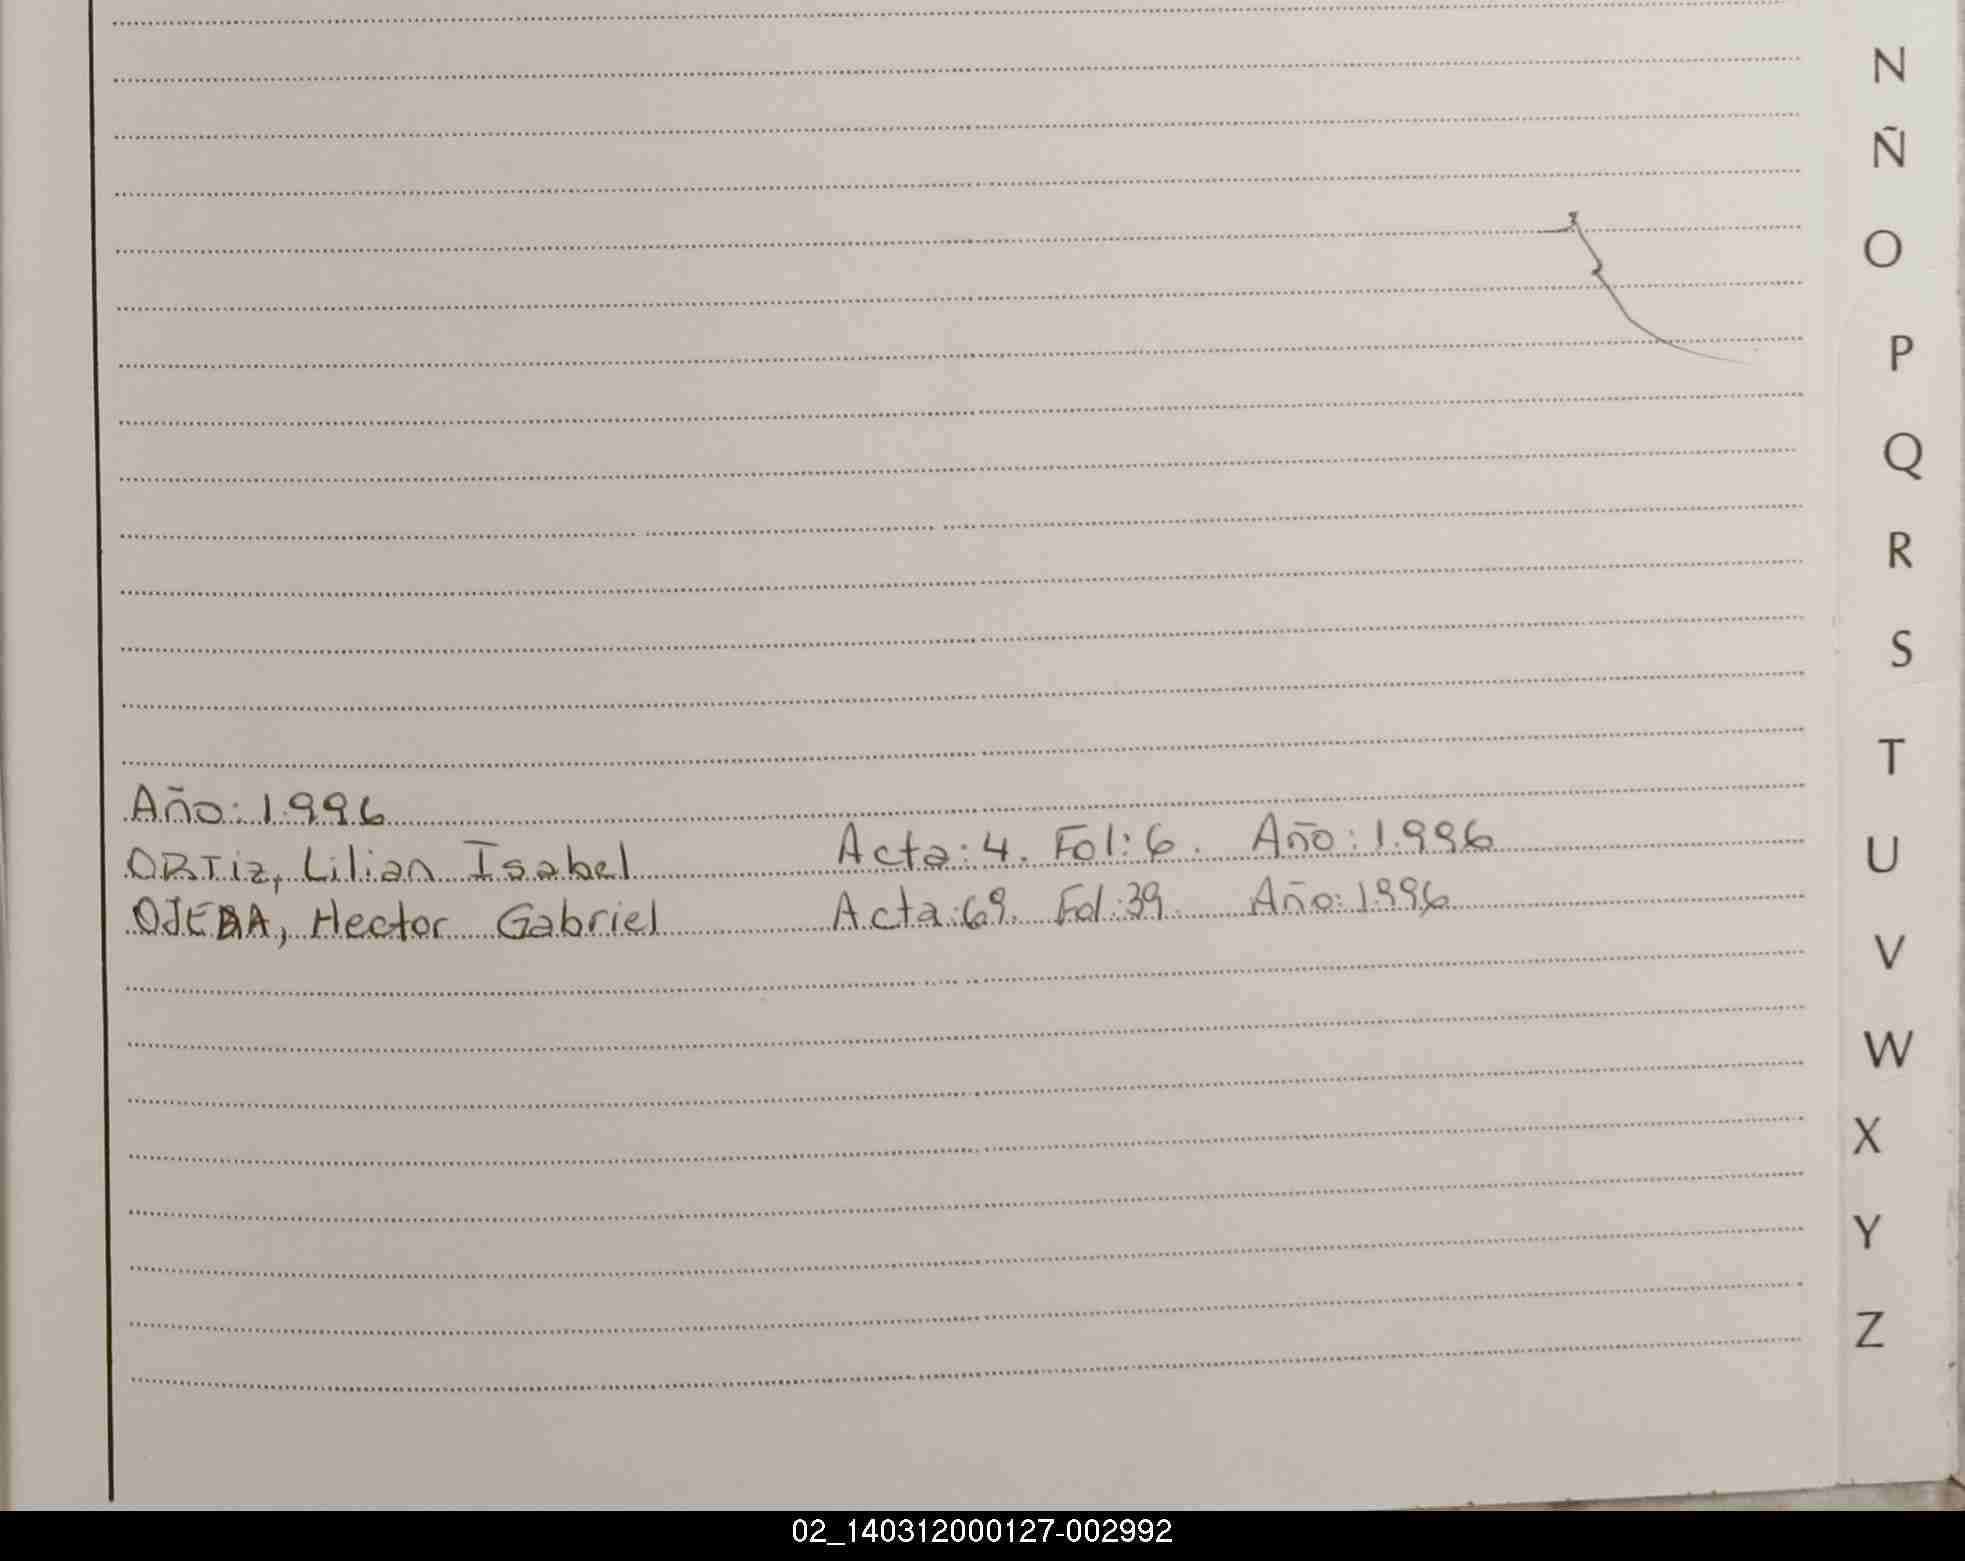 N
Ñ
O
P
Q
R
S
T
U
V
W
X
Y
Z
Año: 1.996
ORTiz, Lilian Isabel Acta: 4. Fol: 6. Año: 1.996
OJEDA, Hector Gabriel Acta: 69. Fol: 39. Año: 1.996
02_140312000127-002992